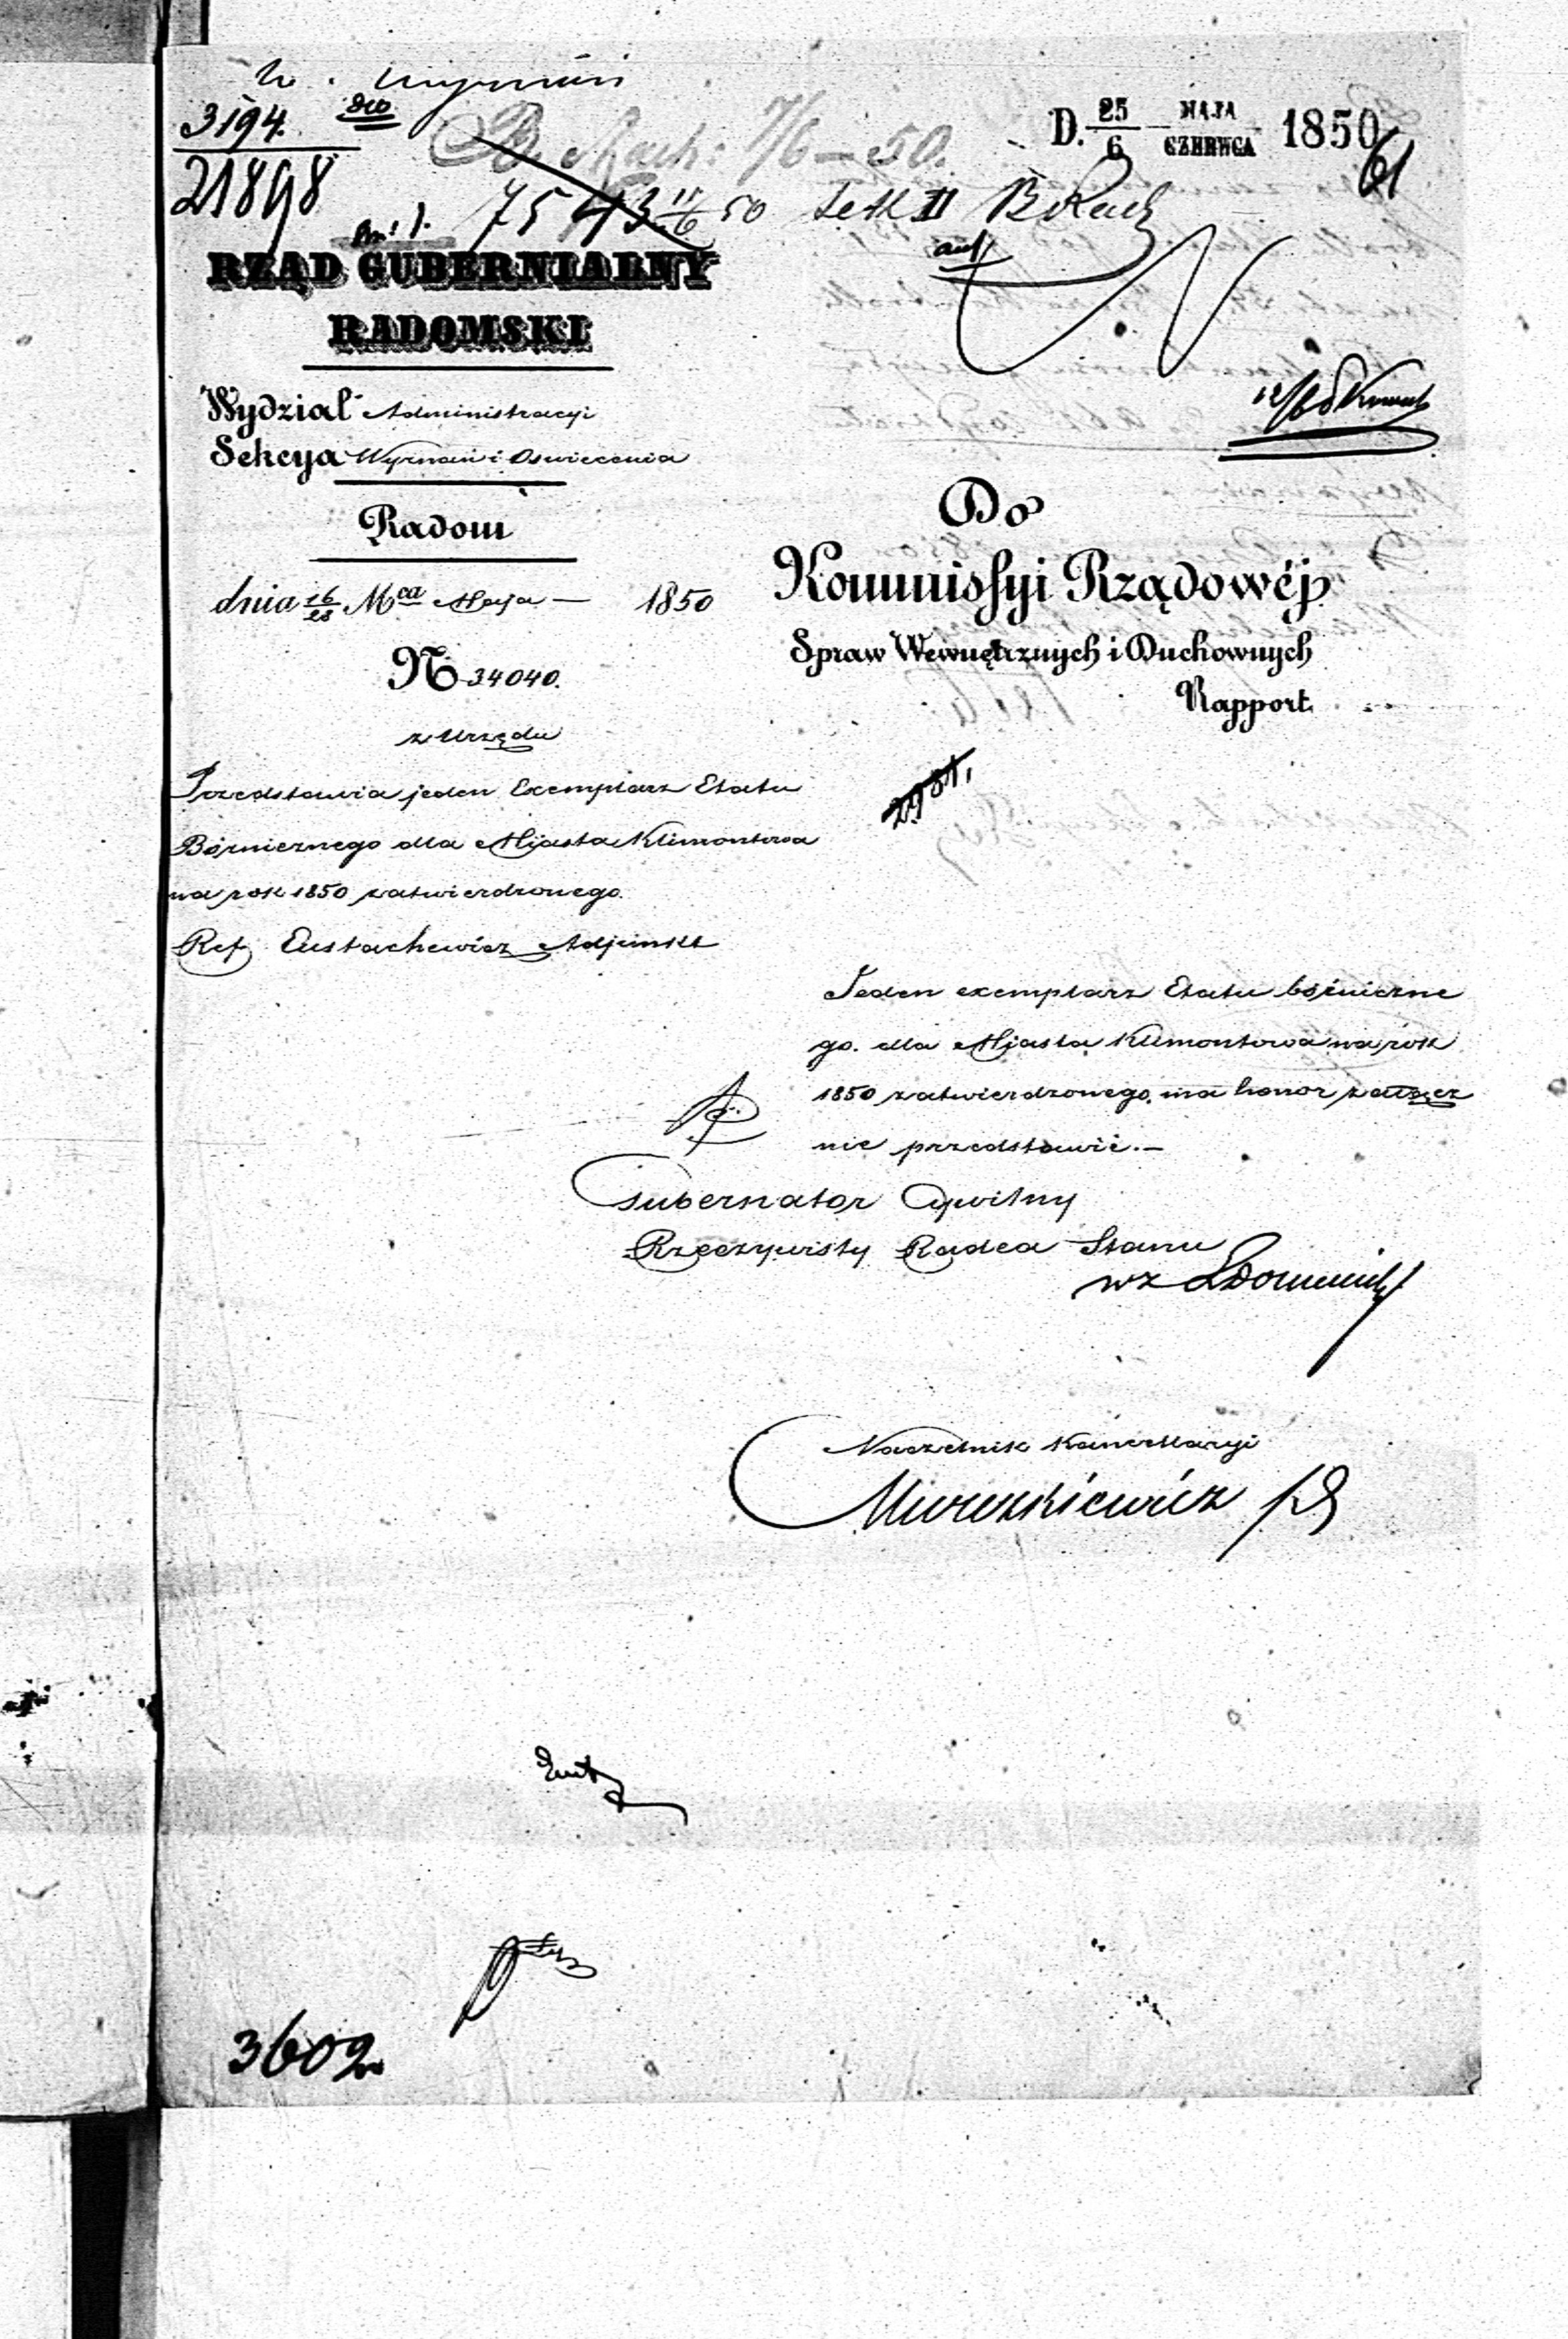 3194.
21898
B. Rach: 7/6 – 50.
D. 25/6 MAJA/CZERWCA 1850
61
7543 11/6 50 Sek II B Rach
RZĄD GUBERNIALNY
RADOMSKI
Wydział Administracyi
Sekcya Wyznań i Oswiecenia
Radom
dnia 16/28 Mca Maja — 1850
N 34040.
z Urzędu
Przedstawia jeden Exemplarz Etatu
Bóżnicznego dla Miasta Klimontowa
na rok 1850 zatwierdzonego.
Ref Eustachewicz Adjunkt
Do
Kommissyi Rządowéj
Spraw Wewnętrznych i Duchownych
Rapport.
Jeden exemplarz Etatu bóżniczne
go. dla Miasta Klimontowa na rok
1850 zatwierdzonego, ma honor załącz
nie przedstawić.—
Gubernator Cywilny
Rzeczywisty Radca Stanu
wz
Naczelnik Kancellaryi
3602